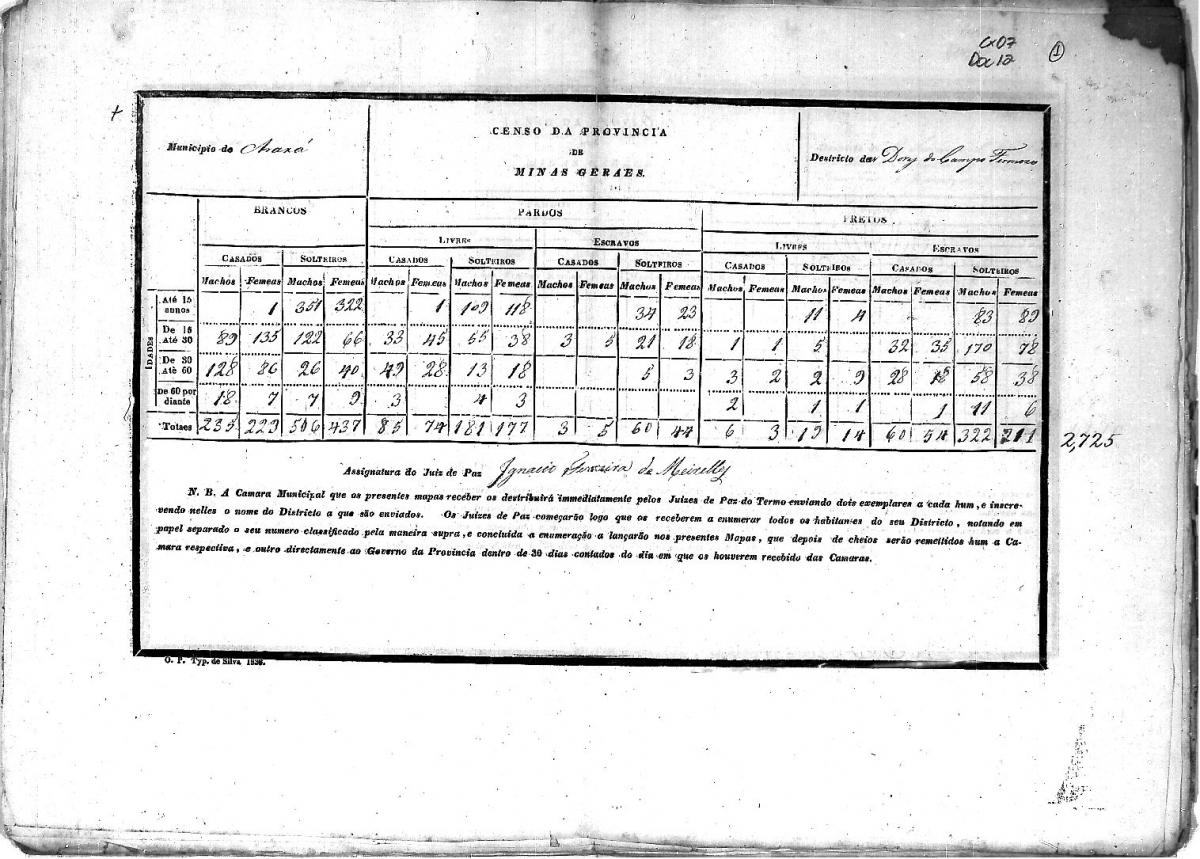 Cx07
Doc 12
1
CENSO DA PROVINCIA
DE
MINAS GERAES.
Municipio do Araxá
Destricto das Dores do Campo Formozo
BRANCOS PARDOS PRETOS
LIVRES ESCRAVOS LIVRES ESCRAVOS
CASADOS SOLTEIROS CASADOS SOLTEIROS CASADOS SOLTEIROS CASADOS SOLTEIROS CASADOS SOLTEIROS
Machos Femeas Machos Femeas Machos Femeas Machos Femeas Machos Femeas Machos Femeas Machos Femeas Machos Femeas Machos Femeas Machos Femeas
IDADES
Até 15 annos 1 351 322 1 109 118 34 23 11 4 - - 83 89
De 15 Até 30 89 135 122 66 33 45 55 38 3 5 21 18 1 1 5 32 35 170 78
De 30 Até 60 128 86 26 40 49 28 13 18 5 3 3 2 2 9 28 18 58 38
De 60 por diante 18 7 7 9 3 4 3 2 1 1 1 11 6
Totaes 235 229 506 437 85 74 181 177 3 5 60 44 6 3 19 14 60 54 322 211 2,725
Assignatura do Juiz de Paz Ignacio Ferreira de Meirelles
N. B. A Camara Municipal que os presentes mapas receber os destribuirá immediatamente pelos Juizes de Paz do Termo enviando dois exemplares a cada hum, e inscre-
vendo nelles o nome do Districto a que são enviados. Os Juizes de Paz começarão logo que os receberem a enumerar todos os habitantes do seu Districto, notando em
papel separado o seu numero classificado pela maneira supra, e concluida a enumeração a lançarão nos presentes Mapas, que depois de cheios serão remettidos hum a Ca-
mara respectiva, e outro directamente ao Governo da Provincia dentro de 30 dias contados do dia em que os houverem recebido das Camaras.
O. P. Typ. de Silva 1836.